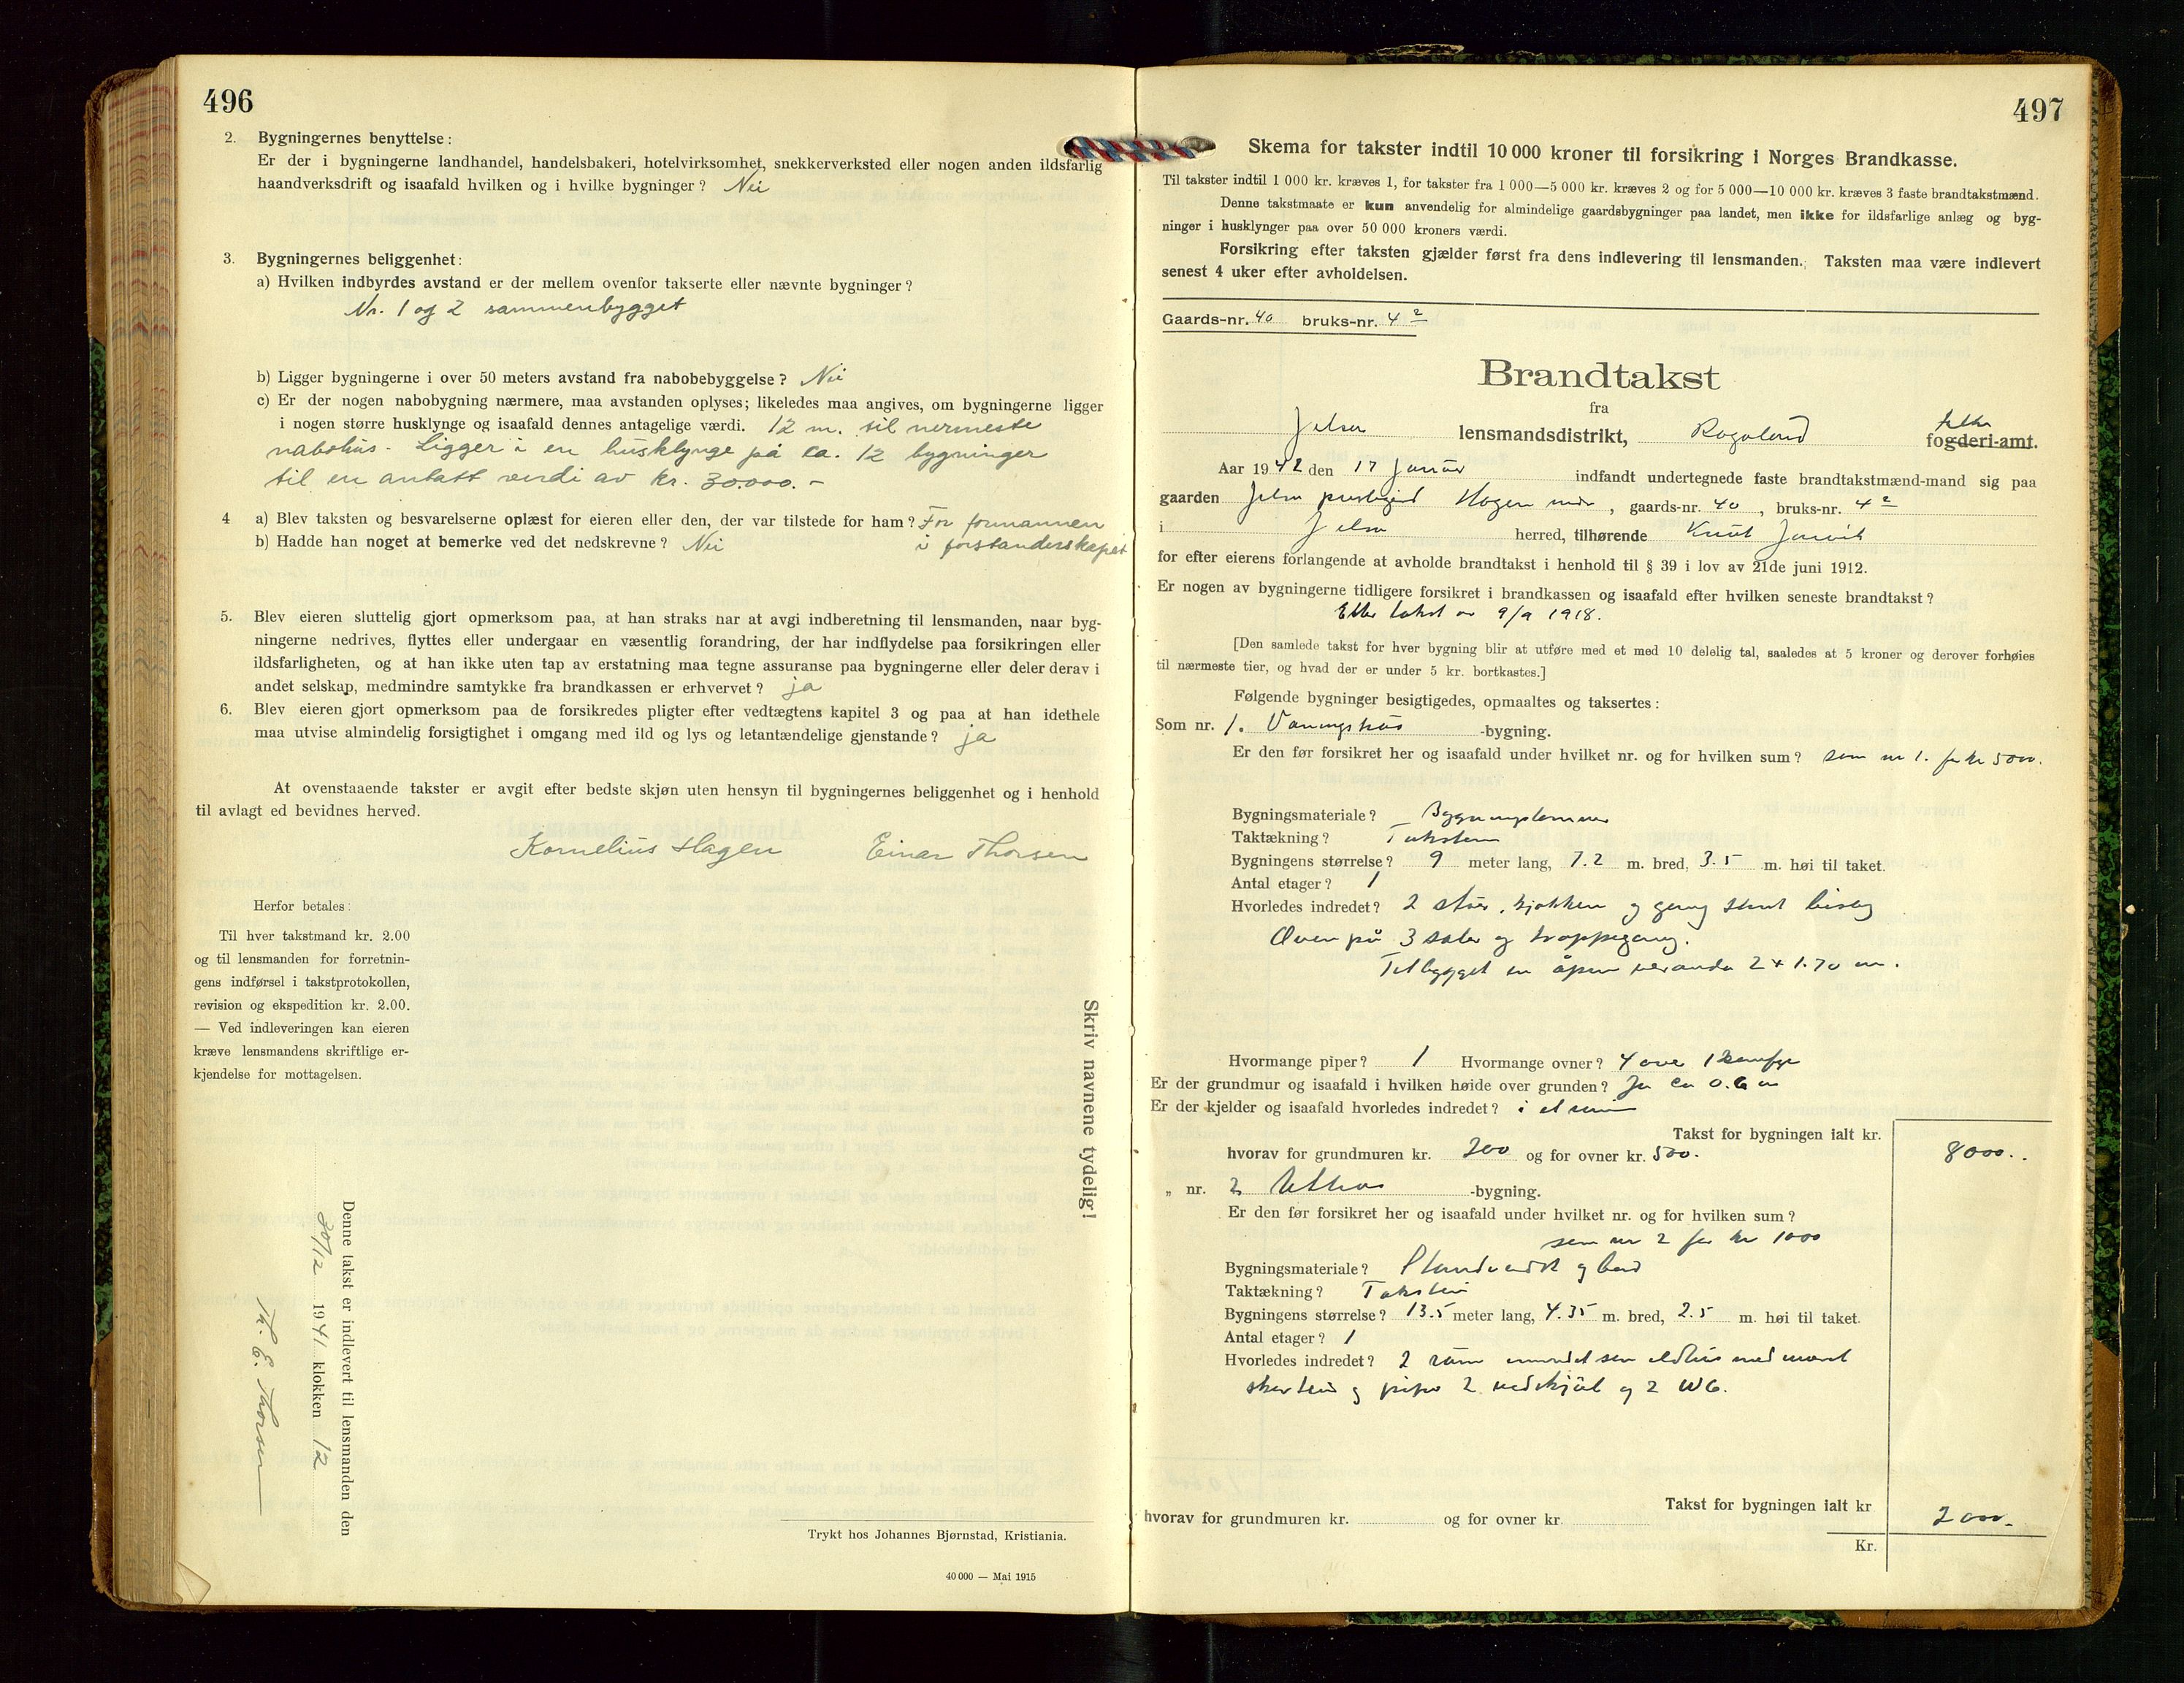 496
2. Bygningernes benyttelse:
Er der i bygningerne landhandel, handelsbakeri, hotelvirksomhet, snekkerverksted eller nogen anden ildsfarlig
haandverksdrift og isaafald hvilken og i hvilke bygninger? Nei
3. Bygningernes beliggenhet:
a) Hvilken indbyrdes avstand er der mellem ovenfor takserte eller nævnte bygninger?
Nr. 1 og 2 sammenbygget
b) Ligger bygningerne i over 50 meters avstand fra nabobebyggelse? Nei
c) Er der nogen nabobygning nærmere, maa avstanden oplyses; likeledes maa angives, om bygningerne ligger
i nogen større husklynge og isaafald dennes antagelige værdi. 12 m. til nermeste
nabohus. Ligger i en husklynge på ca. 12 bygninger
til en antatt verdi av kr. 30.000.-
4 a) Blev taksten og besvarelserne oplæst for eieren eller den, der var tilstede for ham? For formannen
b) Hadde han noget at bemerke ved det nedskrevne? Nei i forstanderskapet
5. Blev eieren sluttelig gjort opmerksom paa, at han straks har at avgi indberetning til lensmanden, naar byg-
ningerne nedrives, flyttes eller undergaar en væsentlig forandring, der har indflydelse paa forsikringen eller
ildsfarligheten, og at han ikke uten tap av erstatning maa tegne assuranse paa bygningerne eller deler derav i
andet selskap, medmindre samtykke fra brandkassen er erhvervet? ja
6. Blev eieren gjort opmerksom paa de forsikredes pligter efter vedtægtens kapitel 3 og paa at han idethele
maa utvise almindelig forsigtighet i omgang med ild og lys og letantændelige gjenstande? ja
At ovenstaaende takster er avgit efter bedste skjøn uten hensyn til bygningernes beliggenhet og i henhold
til avlagt ed bevidnes herved.
Kornelius Hagen Einar Thorsen
Herfor betales:
Til hver takstmand kr. 2.00
og til lensmanden for forretnin-
gens indførsel i takstprotokollen,
revision og ekspedition kr. 2.00.
— Ved indleveringen kan eieren
kræve lensmandens skriftlige er-
kjendelse for mottagelsen.
Skriv navnene tydelig!
Denne takst er indlevert til lensmanden den
30/12 1941 klokken 12
Th. E. Thorsen
Trykt hos Johannes Bjørnstad, Kristiania.
40 000 — Mai 1915
497
Skema for takster indtil 10 000 kroner til forsikring i Norges Brandkasse.
Til takster indtil 1 000 kr. kræves 1, for takster fra 1 000—5 000 kr. kræves 2 og for 5 000—10 000 kr. kræves 3 faste brandtakstmænd.
Denne takstmaate er kun anvendelig for almindelige gaardsbygninger paa landet, men ikke for ildsfarlige anlæg og byg-
ninger i husklynger paa over 50 000 kroners værdi.
Forsikring efter taksten gjælder først fra dens indlevering til lensmanden. Taksten maa være indlevert
senest 4 uker efter avholdelsen.
Gaards-nr. 40 bruks-nr. 4 2
Brandtakst
fra
Jelsa lensmandsdistrikt, Rogaland fylke fogderi-amt.
Aar 1942 den 17 Januar indfandt undertegnede faste brandtakstmænd-mand sig paa
gaarden Jelsa prestegård Hagen, gaards-nr. 40, bruks-nr. 4 2
i Jelsa herred, tilhørende Knut
for efter eierens forlangende at avholde brandtakst i henhold til § 39 i lov av 21de juni 1912.
Er nogen av bygningerne tidligere forsikret i brandkassen og isaafald efter hvilken seneste brandtakst?
Etter takst av 9/9 1918.
[Den samlede takst for hver bygning blir at utføre med et med 10 delelig tal, saaledes at 5 kroner og derover forhøies
til nærmeste tier, og hvad der er under 5 kr. bortkastes.]
Følgende bygninger besigtigedes, opmaaltes og taksertes:
Som nr. 1. Våningshus -bygning.
Er den før forsikret her og isaafald under hvilket nr. og for hvilken sum? som nr 1. for kr 5000.
Bygningsmateriale? Bygningstømmer
Taktækning? Takstein
Bygningens størrelse? 9 meter lang, 7.2 m. bred, 3.5 m. høi til taket.
Antal etager? 1
Hvorledes indredet? 2 stuer, kjøkken og gang samt bislag
Oven på 3 saler og trappegang.
Tilbygget en åpen veranda 2 x 1.70 m.
Hvormange piper? 1 Hvormange ovner? 4 ovner 1 komfyr
Er der grundmur og isaafald i hvilken høide over grunden? Ja ca 0.6 m
Er der kjelder og isaafald hvorledes indredet? i et rum
Takst for bygningen ialt kr. 8000..
hvorav for grundmuren kr. 200 og for ovner kr. 500.
„ nr. 2 Uthus -bygning.
Er den før forsikret her og isaafald under hvilket nr. og for hvilken sum?
som nr 2 for kr 1000
Bygningsmateriale? Standverk og bord
Taktækning? Takstein
Bygningens størrelse? 13.5 meter lang, 4.35 m. bred, 2.5 m. høi til taket.
Antal etager? 1
Hvorledes indredet? 2 rum innredet som eldhus med muret
skorstein og pipe 2 vedskjul og 2 WC.
Takst for bygningen ialt kr 2000.
hvorav for grundmuren kr. og for ovner kr.
Kr.